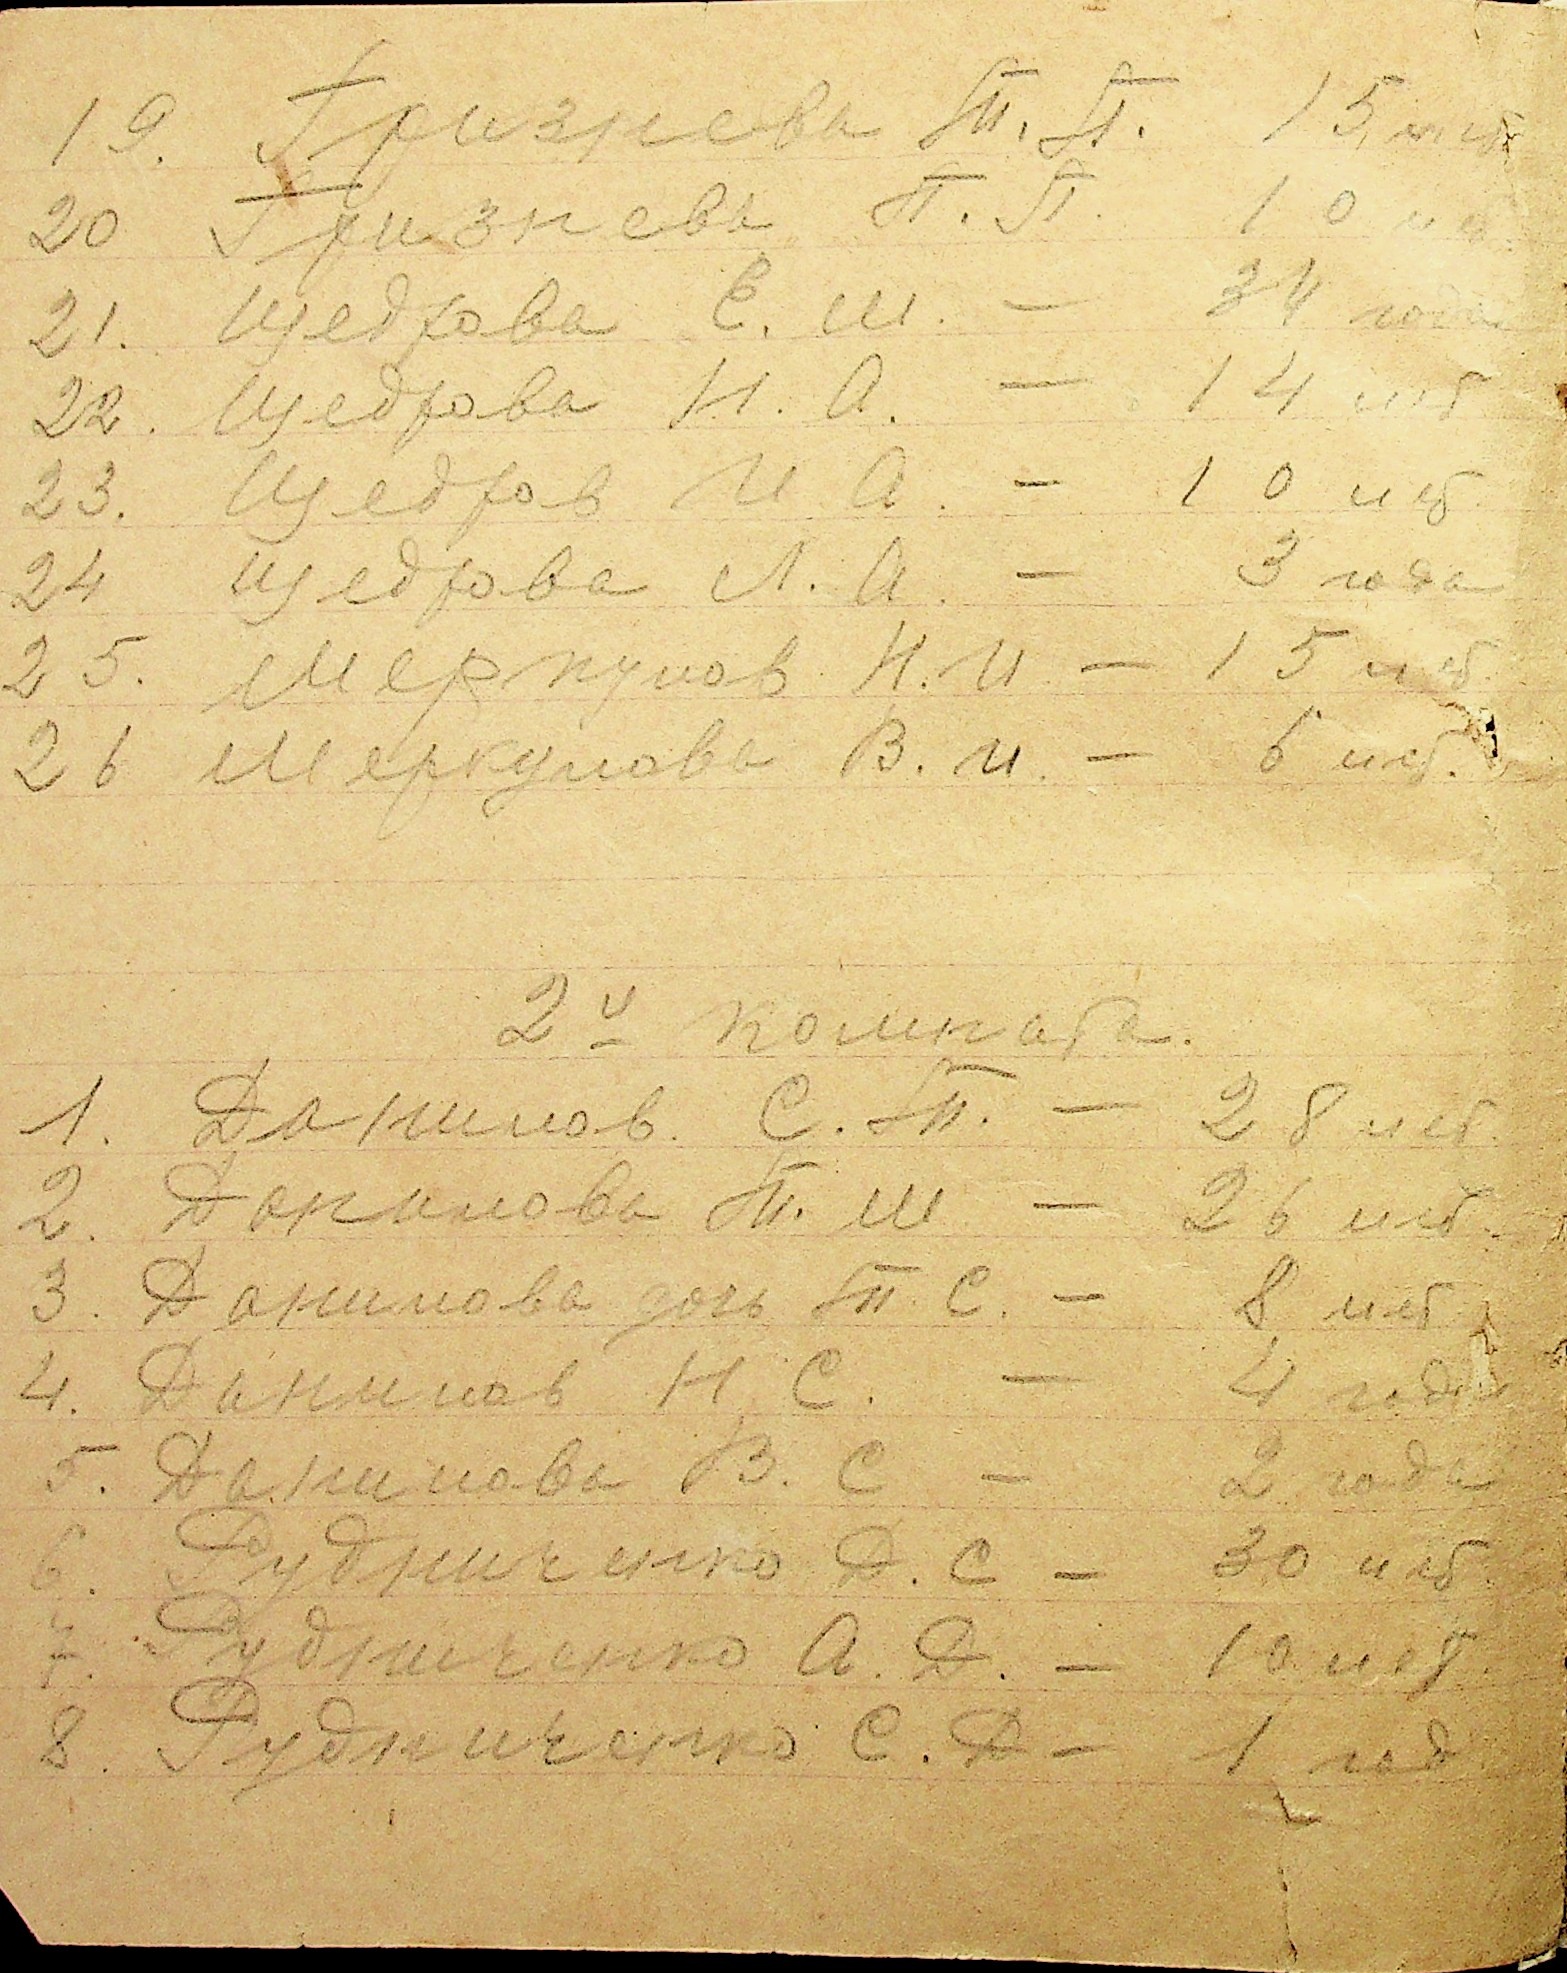 19. Гризнева Т. П. 15 лет
20 Гризнева П. П. 10 лет
21. Щедрова Е. М. — 34 года
22. Щедрова Н. А. — 14 лет
23. Щедров И А. — 10 лет
24 Щедрова Л. А. — 3 года
25. Меркулов Н. И — 15 лет.
26 Меркулова В. И. — 6 лет.
2я комната.
1. Данилов. С. Т. — 28 лет.
2. Данилова Т. М — 26 лет.
3. Данилова дочь Т. С. — 8 лет
4. Данилов Н С. — 4 года
5. Данилова В. С — 2 года
6. Рудниченко Д. С — 30 лет.
7. Рудниченко А. Д. — 10 лет.
8. Рудниченко С. Д — 1 год